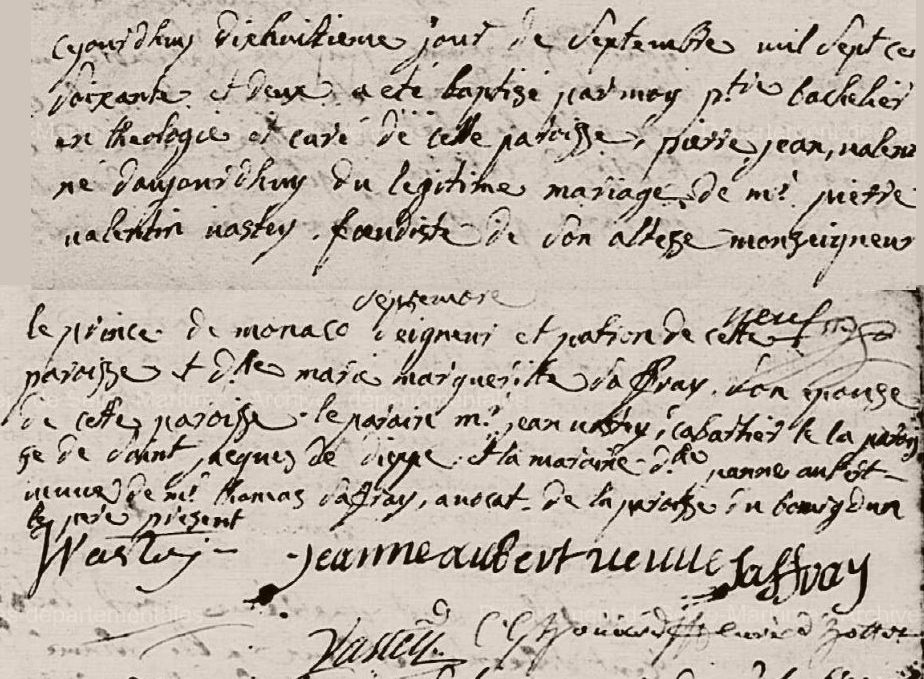 cejourdhuy dixhuitieme jour de Septembre mil Sept ce
Soixante et deux a eté baptisé par moy ptre bachelier
en theologie et curé de cette paroisse, pierre, jean, valen
né daujourdhuy du legitime mariage de mr. pierre
valentin vastey, foeudiste de Son altesse monseigneur
Septembre
le prince de monaco Seigneur et patron de cette neuf
paroisse et dlle marie marguerite daffray, Son epouse
de cette paroisse. le parain mr. jean vastey, cabartier de la parois
se de Saint jacques de dieppe. et la maraine dlle jeanne aubert
veuve de mr thomas daffray, avocat de la paroisse du bourgdun
le pere present
Wastey jeanne aubert veuve daffray
Vastey